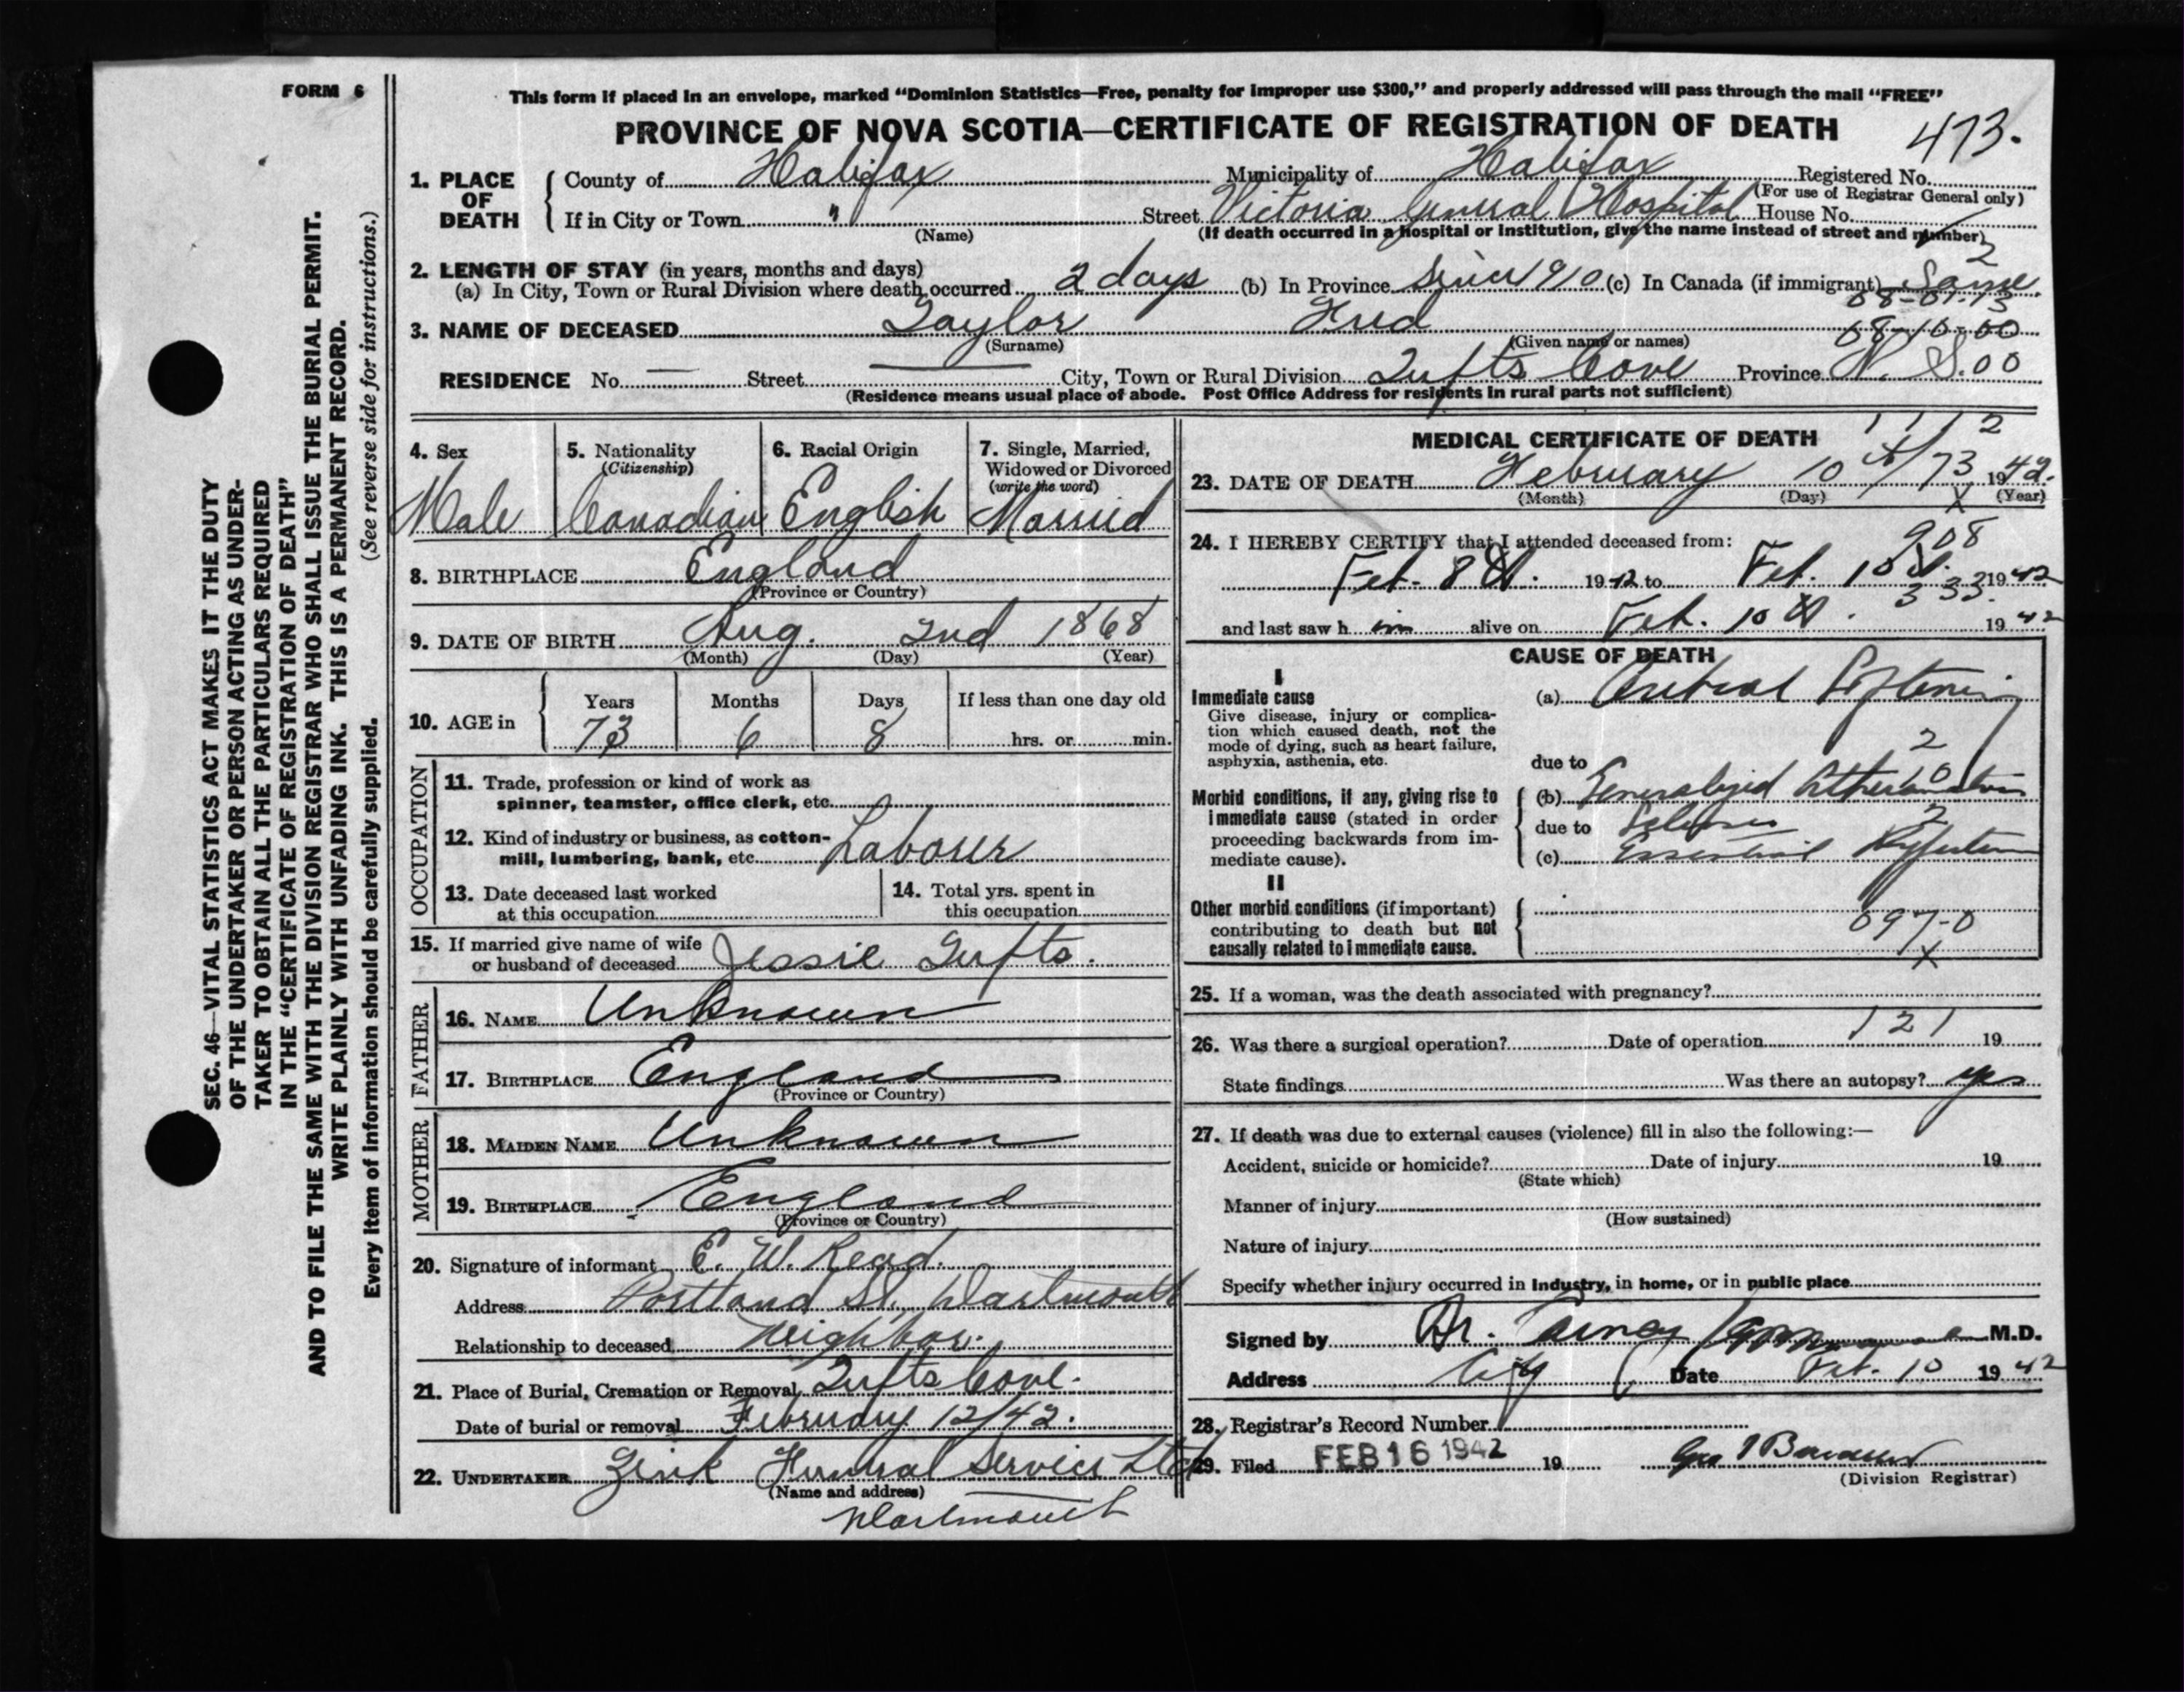 FORM 6
This form if placed in an envelope, marked "Dominion Statistics—Free, penalty for improper use $300," and properly addressed will pass through the mail "FREE"
PROVINCE OF NOVA SCOTIA—CERTIFICATE OF REGISTRATION OF DEATH
473.
1. PLACE OF DEATH { County of Halifax Municipality of Halifax Registered No.
(For use of Registrar General only)
If in City or Town " Street Victoria General Hospital House No.
(Name) (If death occurred in a hospital or institution, give the name instead of street and number)
2
2. LENGTH OF STAY (in years, months and days)
(a) In City, Town or Rural Division where death occurred 2 days (b) In Province Since 1910 (c) In Canada (if immigrant) Same.
08-01-13
3. NAME OF DECEASED Taylor Fred
08-10-00
(Surname) (Given name or names)
RESIDENCE No. — Street — City, Town or Rural Division Tufts Cove Province N. S. 00
(Residence means usual place of abode. Post Office Address for residents in rural parts not sufficient)
4. Sex
Male
5. Nationality
(Citizenship)
Canadian
6. Racial Origin
English
7. Single, Married,
Widowed or Divorced
(write the word)
Married
8. BIRTHPLACE England
(Province or Country)
9. DATE OF BIRTH Aug. 2nd 1868
(Month) (Day) (Year)
10. AGE in { Years Months Days If less than one day old
73 6 8 hrs. or min.
OCCUPATION
11. Trade, profession or kind of work as
spinner, teamster, office clerk, etc.
12. Kind of industry or business, as cotton-
mill, lumbering, bank, etc. Laborer
13. Date deceased last worked
at this occupation
14. Total yrs. spent in
this occupation
15. If married give name of wife
or husband of deceased Jessie Tufts.
FATHER
16. NAME Unknown
17. BIRTHPLACE England
(Province or Country)
MOTHER
18. MAIDEN NAME Unknown
19. BIRTHPLACE England
(Province or Country)
20. Signature of informant E. W. Read.
Address Portland St., Dartmouth
Relationship to deceased Neighbor.
21. Place of Burial, Cremation or Removal Tufts Cove.
Date of burial or removal February 12/42.
22. UNDERTAKER Zink Funeral Service Ltd
(Name and address)
Dartmouth
MEDICAL CERTIFICATE OF DEATH
1 1 1 2
23. DATE OF DEATH February 10th / 73 1942.
(Month) (Day) X (Year)
908
24. I HEREBY CERTIFY that I attended deceased from:
Feb. 8th. 1942 to Feb. 10th. 1942
333.
and last saw h im alive on Feb. 10th. 1942
CAUSE OF DEATH
I
Immediate cause
Give disease, injury or complica-
tion which caused death, not the
mode of dying, such as heart failure,
asphyxia, asthenia, etc.
(a) Cerebral Softening
2
due to
Morbid conditions, if any, giving rise to
immediate cause (stated in order
proceeding backwards from im-
mediate cause).
(b) Generalized
due to
(c) Essential
II
Other morbid conditions (if important)
contributing to death but not
causally related to immediate cause.
097-0
X
25. If a woman, was the death associated with pregnancy?
121
26. Was there a surgical operation? Date of operation 19
State findings Was there an autopsy? yes
27. If death was due to external causes (violence) fill in also the following:—
Accident, suicide or homicide? Date of injury 19
(State which)
Manner of injury
(How sustained)
Nature of injury
Specify whether injury occurred in industry, in home, or in public place
Signed by Dr. M.D.
Address City Date Feb. 10 1942
28. Registrar's Record Number
29. Filed FEB 16 1942 19
(Division Registrar)
SEC. 46—VITAL STATISTICS ACT MAKES IT THE DUTY
OF THE UNDERTAKER OR PERSON ACTING AS UNDER-
TAKER TO OBTAIN ALL THE PARTICULARS REQUIRED
IN THE "CERTIFICATE OF REGISTRATION OF DEATH"
AND TO FILE THE SAME WITH THE DIVISION REGISTRAR WHO SHALL ISSUE THE BURIAL PERMIT.
WRITE PLAINLY WITH UNFADING INK. THIS IS A PERMANENT RECORD.
Every item of information should be carefully supplied. (See reverse side for instructions.)